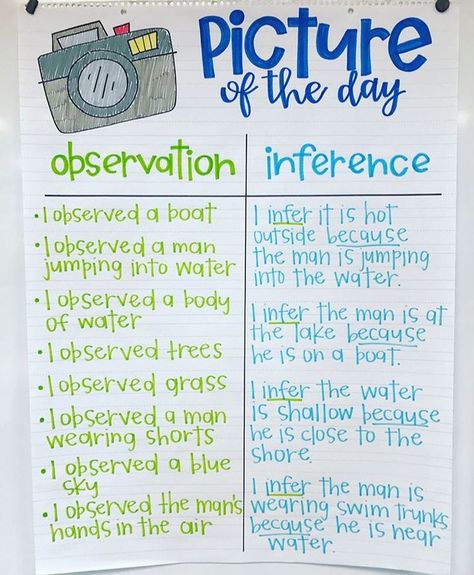 picture
of the day
observation
inference
• I observed a boat
• I observed a man
jumping into water
• I observed a body
of water
• I observed trees
• I observed grass
• I observed a man
wearing shorts
• I observed a blue
sky
• I observed the man's
hands in the air
I infer it is hot
outside because
the man is jumping
into the water.
I infer the man is at
the lake because
he is on a boat.
I infer the water
is shallow because
he is close to the
shore.
I infer the man is
wearing swim trunks
because he is near
water.